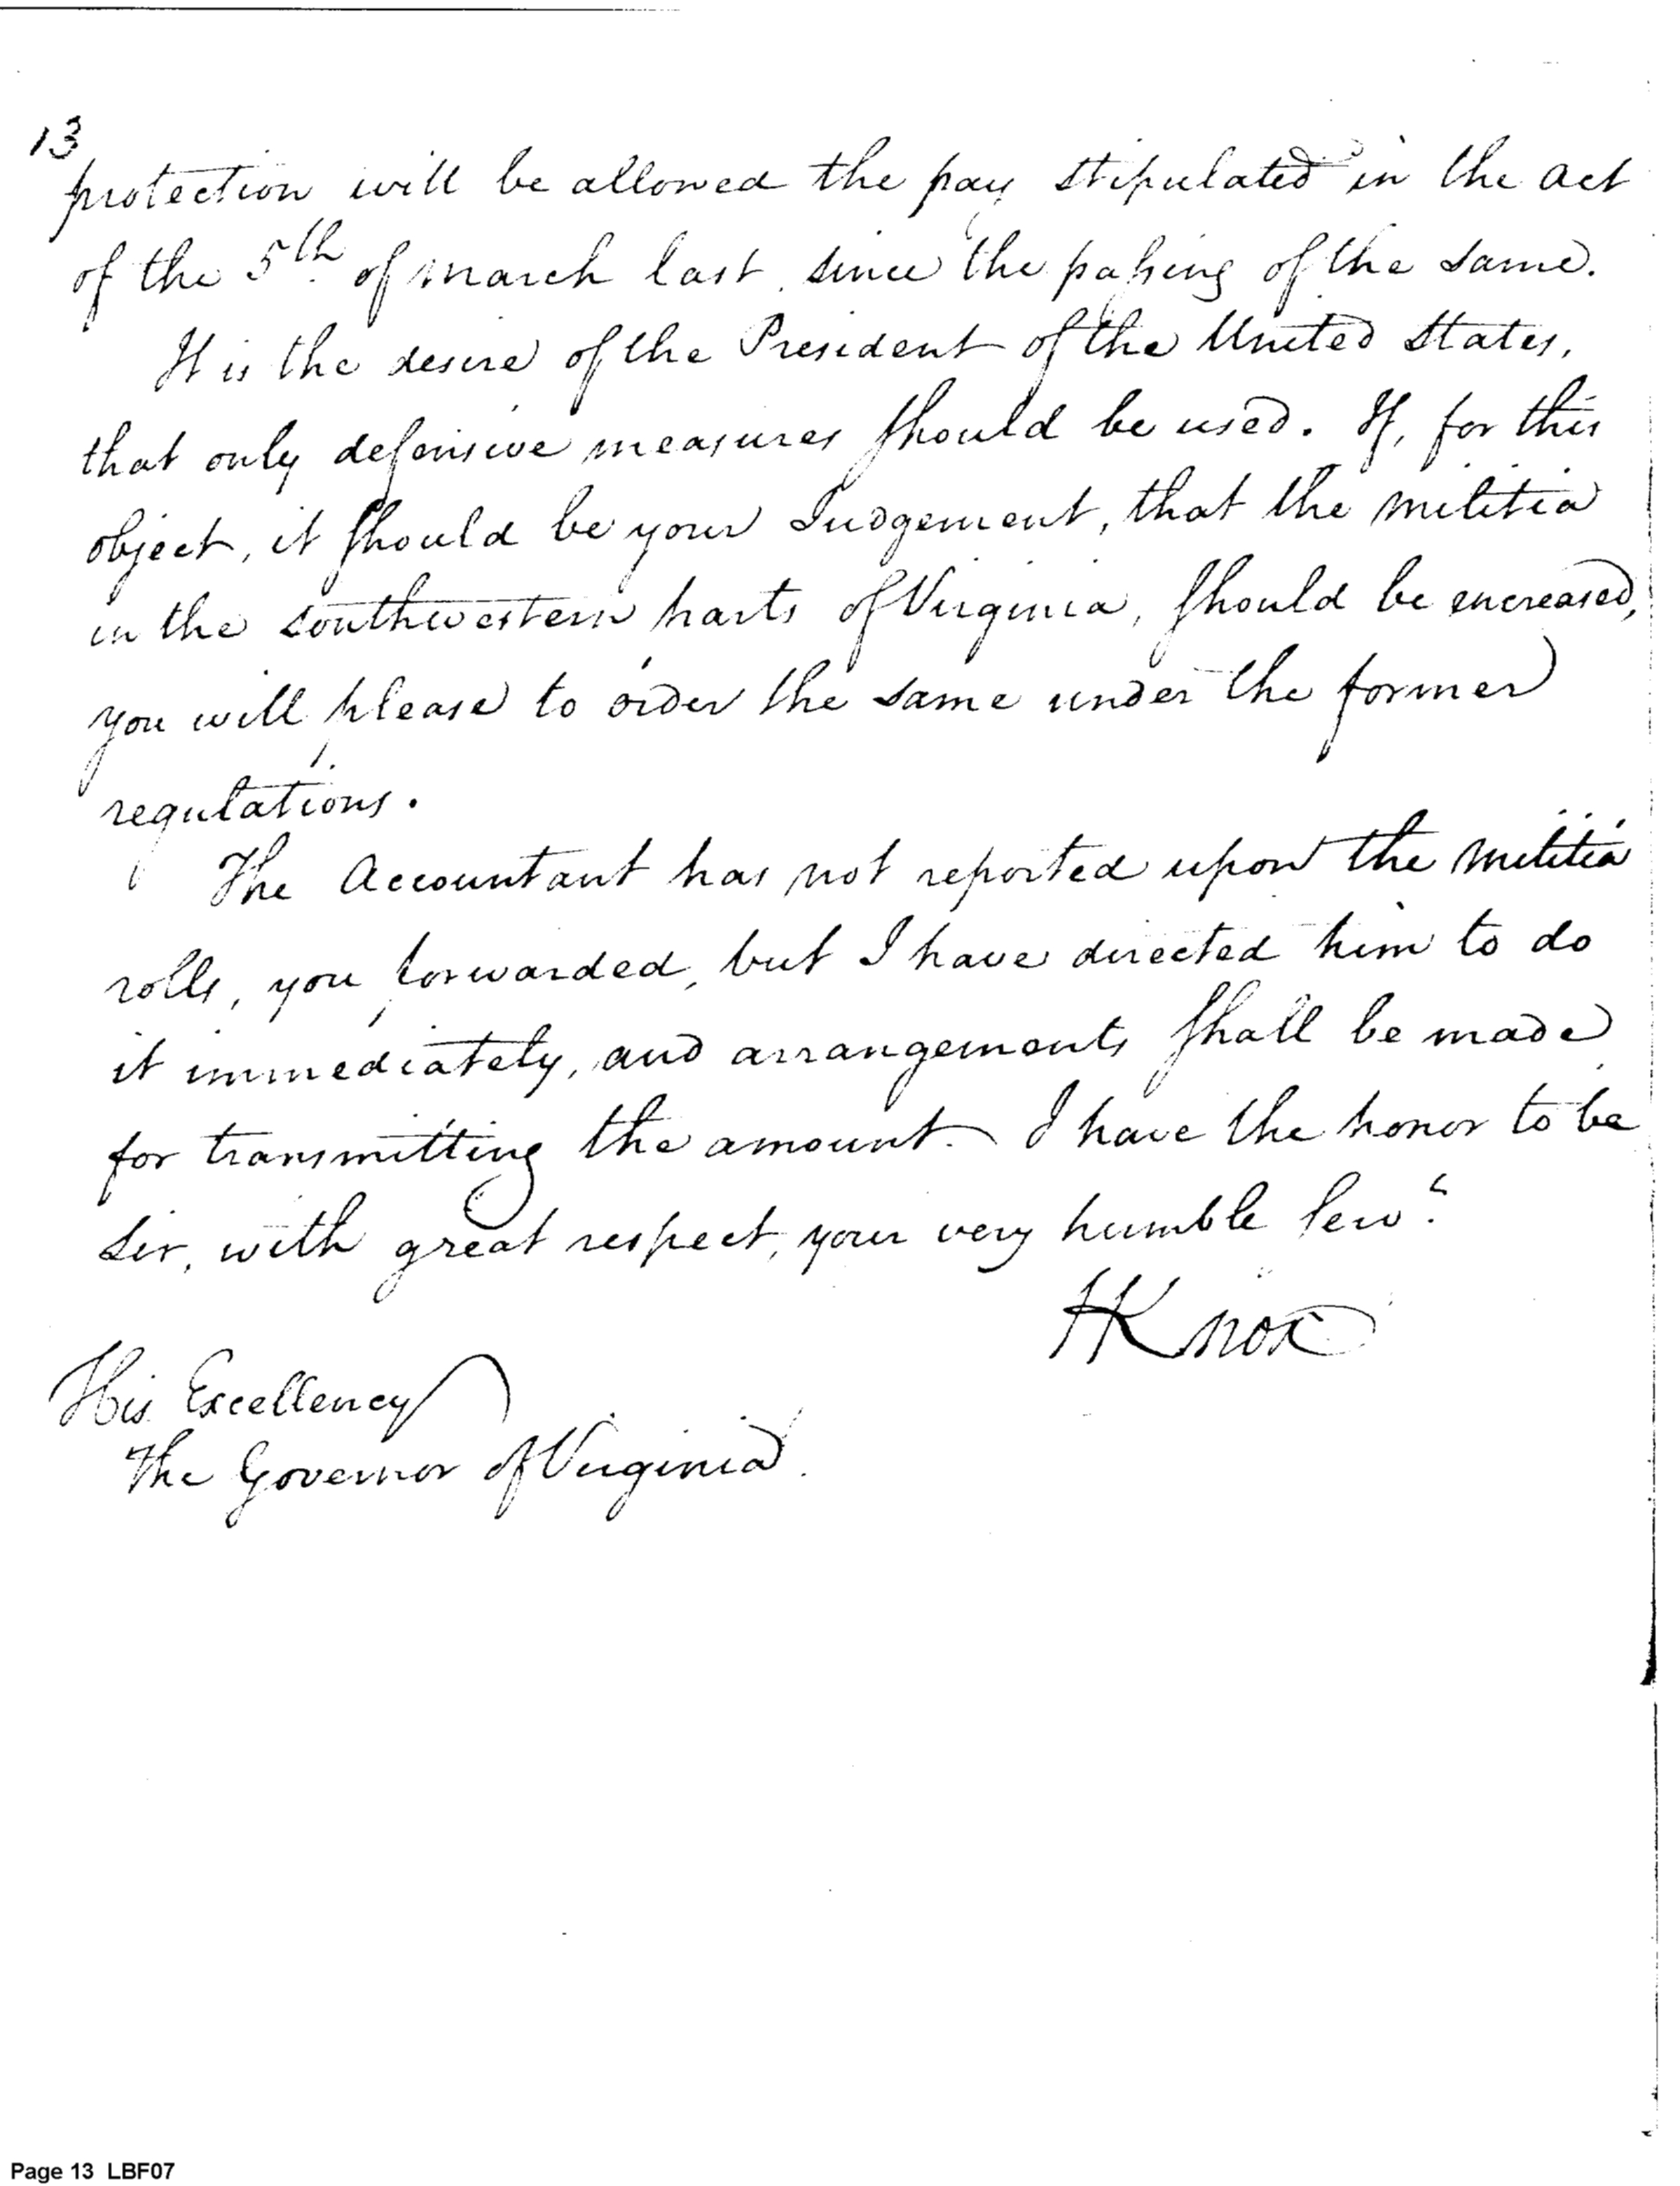 13
protection will be allowed the pay stipulated in the act
of the 5th. of march last, since the passing of the same.
It is the desire of the President of the United States,
that only defensive measures should be used. If, for this
object, it should be your Judgement, that the militia
in the southwestern parts of Virginia, should be encreased,
you will please to order the same under the former
regulations.
The Accountant has not reported upon the militia
rolls, you forwarded, but I have directed him to do
it immediately, and arrangements shall be made
for transmitting the amount. I have the honor to be
Sir, with great respect, your very humble Serv.t
HKnox
His Excellency
The Governor of Virginia.
Page 13 LBF07